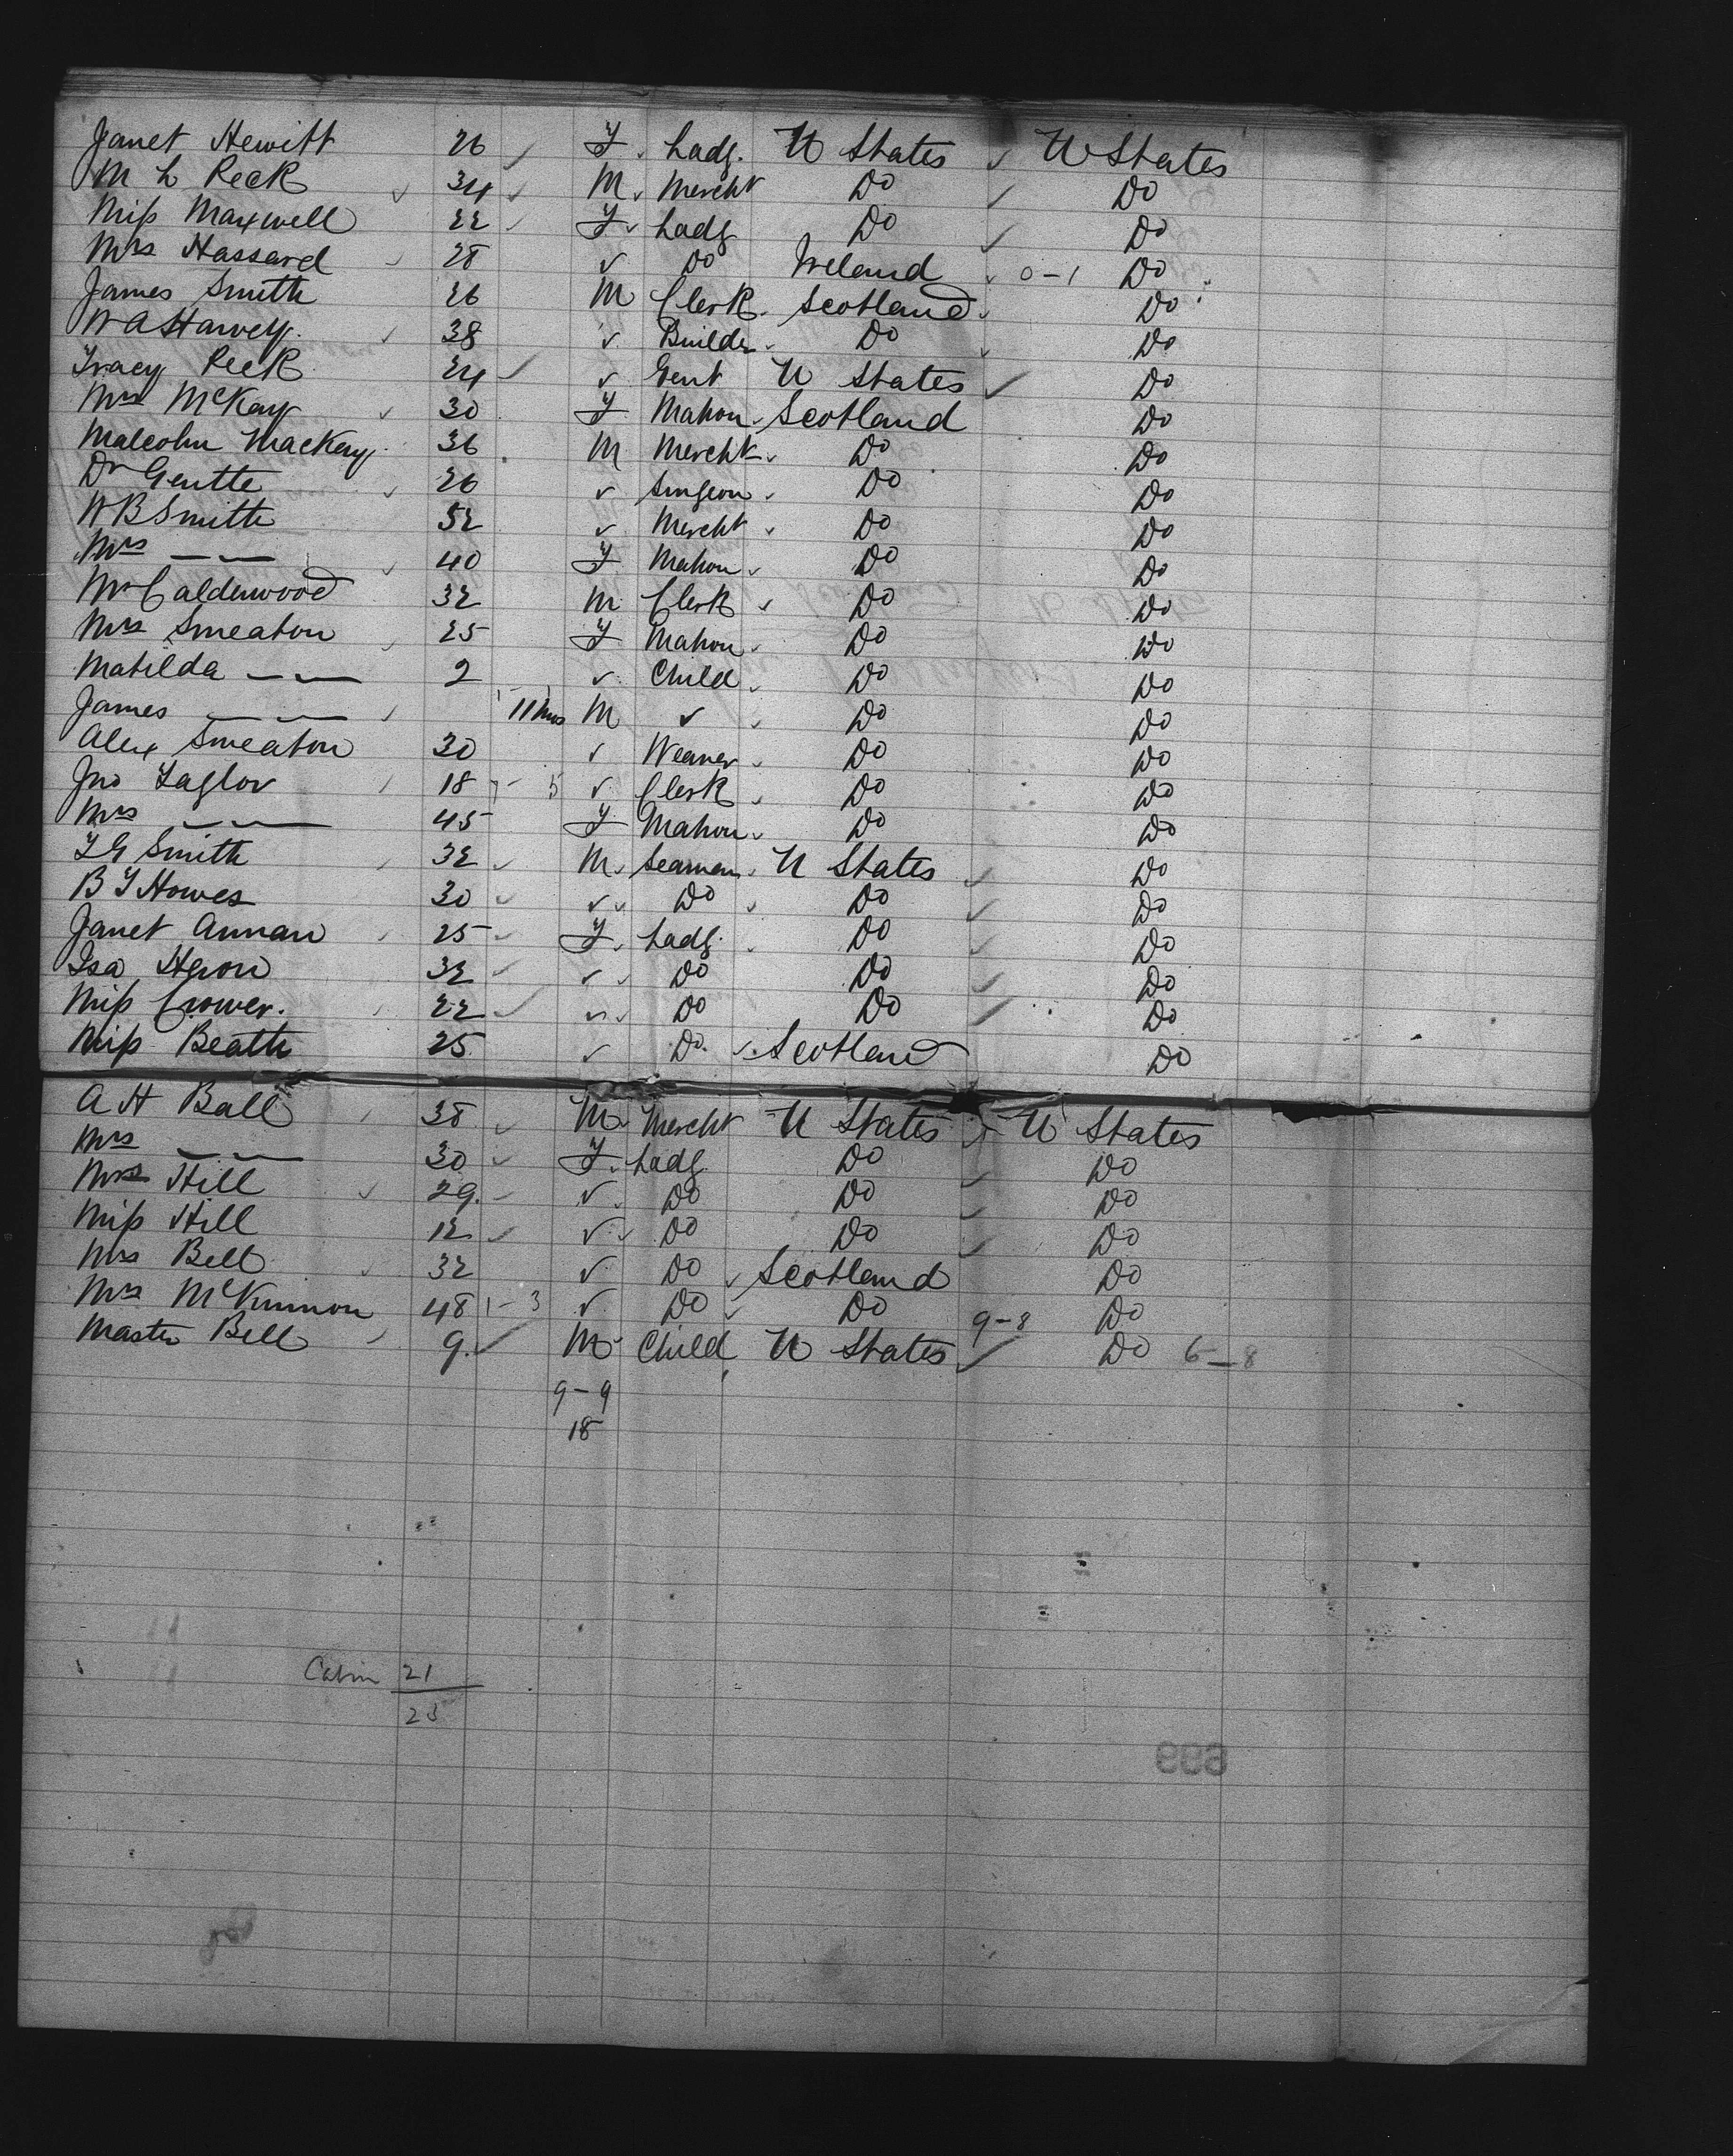 Janet Hewitt 26 F Lady. U States U States
M L Peck 34 M Mercht Do Do
Miss Maxwell 22 F Lady Do Do
Mrs Hassard 28 Do Ireland 0-1 Do
James Smith 26 M Clerk Scotland Do
W A Harvey 38 Builder Do Do
Tracy Peck 24 Gent U States Do
Mrs McKay 30 F Matron Scotland Do
Malcolm Mackay 36 M Mercht Do Do
Dr 26 Surgeon Do Do
W B Smith 52 Mercht Do Do
Mrs — — 40 F Matron Do Do
Mr Calderwood 32 M Clerk Do Do
Mrs Smeaton 25 F Matron Do Do
Matilda — — 2 Child Do Do
James — — 11 mos M Do Do
Alex Smeaton 30 Weaver Do Do
Jno Taylor 18 7 - 5 Clerk Do Do
Mrs — — 45 F Matron Do Do
T G Smith 32 M Seaman U States Do
B F Howes 30 Do Do Do
Janet Annan 25 F Lady Do Do
Isa Heron 32 Do Do Do
Miss Crower. 22 Do Do Do
Miss Beath 25 Do Scotland Do
A H Ball 38 M Mercht U States U States
Mrs — — 30 F Lady Do Do
Mrs Hill 29. Do Do Do
Miss Hill 12 Do Do Do
Mrs Bell 32 Do Scotland Do
Mrs McKinnon 48 1-3 Do Do 9-8 Do
Master Bell 9. M Child U States Do 6-8
9-9
18
Cabin 21
23
699